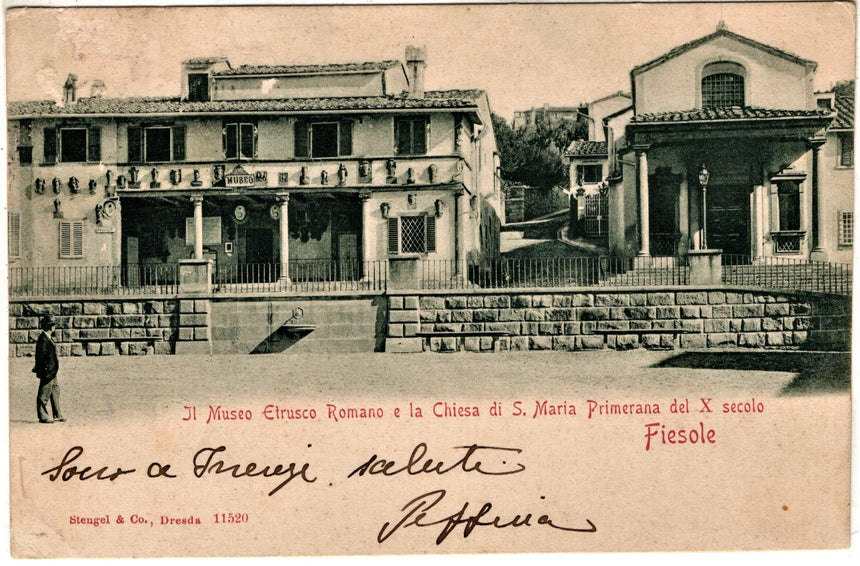 MUSEO
Il Museo Etrusco Romano e la Chiesa di S. Maria Primerana del X secolo
Fiesole
Sono a Firenze. salute.
Stengel & Co., Dresda 11520
Peppina